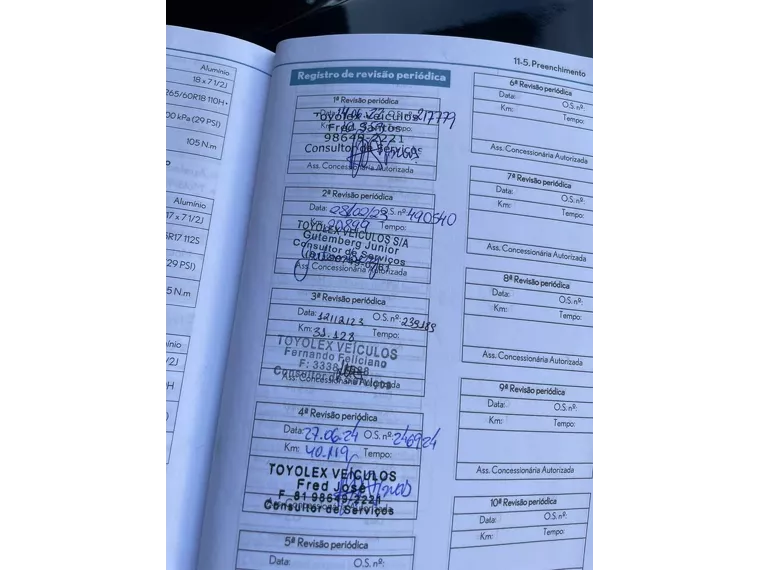 Alumínio
18 x 7 1/2J
265/60R18 110H
00 kPa (29 PSI)
105 N.m
Alumínio
17 x 7 1/2J
5R17 112S
29 PSI)
5 N.m
ínio
1/2J
0H
SI)
.m
11-5. Preenchimento
Registro de revisão periódica
1ª Revisão periódica
Data: O.S. nº: 217779
Toyolex Veículos
Km: Tempo:
Fred Santos
98649-2221
Consultor de Serviços
Ass. Concessionária Autorizada
2ª Revisão periódica
Data: 28/02/23 O.S. nº: 490540
Km: 20899 Tempo:
TOYOLEX VEÍCULOS S/A
Gutemberg Junior
Consultor de Serviços
Ass. Concessionária Autorizada
3ª Revisão periódica
Data: 12/12/23 O.S. nº: 239189
Km: 31.128 Tempo:
TOYOLEX VEÍCULOS
Fernando Feliciano
F: 3338
Consultor de Serviços
Ass. Concessionária Autorizada
4ª Revisão periódica
Data: 27.06.24 O.S. nº: 246924
Km: 40.119 Tempo:
TOYOLEX VEÍCULOS
Fred José
F. 81 98649-2221
Consultor de Serviços
5ª Revisão periódica
Data: O.S. nº:
6ª Revisão periódica
Data: O.S. nº:
Km: Tempo:
Ass. Concessionária Autorizada
7ª Revisão periódica
Data: O.S. nº:
Km: Tempo:
Ass. Concessionária Autorizada
8ª Revisão periódica
Data: O.S. nº:
Km: Tempo:
Ass. Concessionária Autorizada
9ª Revisão periódica
Data: O.S. nº:
Km: Tempo:
Ass. Concessionária Autorizada
10ª Revisão periódica
Data: O.S. nº:
Km: Tempo: